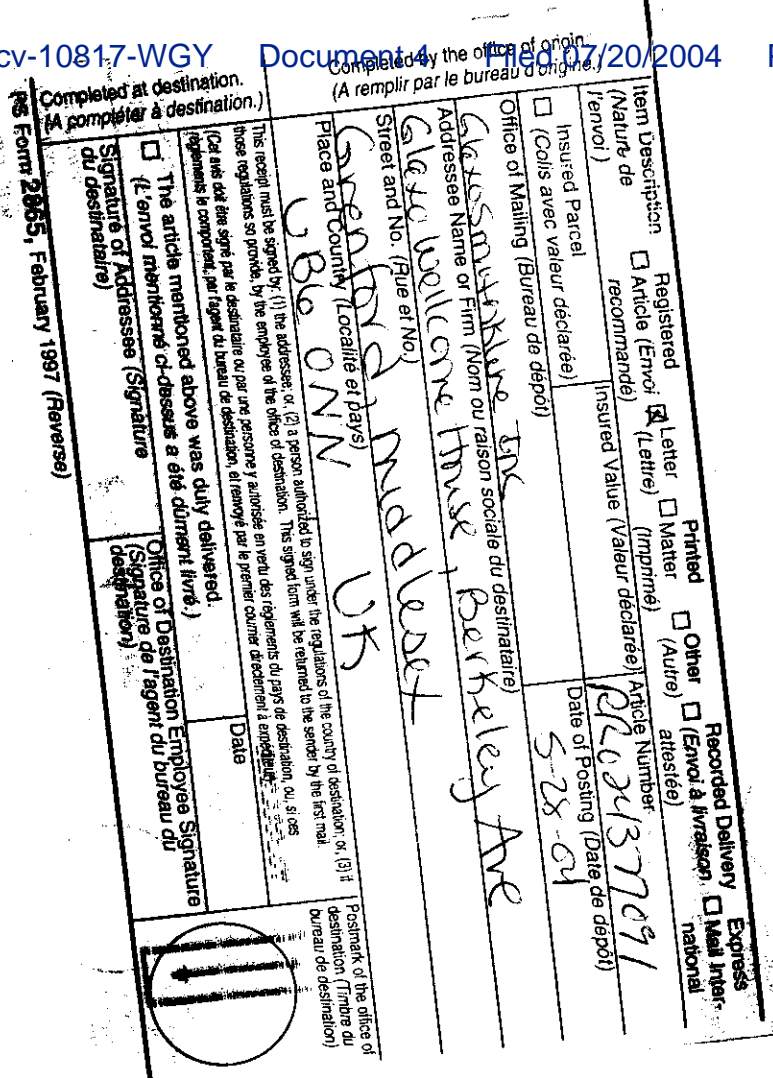 cv-10817-WGY Document 4 Filed 07/20/2004
Completed by the office of origin.
(A remplir par le bureau d'origine.)
Item Description
(Nature de
l'envoi)
Registered
☐ Article (Envoi
recommandé)
☒ Letter
(Lettre)
Printed
☐ Matter
(Imprimé)
☐ Other
(Autre)
Recorded Delivery
☐ (Envoi à livraison
attestée)
Express
☐ Mail Inter-
national
Insured Parcel
☐ (Colis avec valeur déclarée)
Insured Value (Valeur déclarée)
Article Number
Office of Mailing (Bureau de dépôt)
Date of Posting (Date de dépôt)
5-28-04
Addressee Name or Firm (Nom ou raison sociale du destinataire)
GlaxoSmithKline
Street and No. (Rue et No.)
Glaxo Wellcome House, Berkeley Ave
Place and Country (Localité et pays)
Greenford, Middlesex
UB6 0NN UK
Completed at destination.
(A compléter à destination.)
This receipt must be signed by: (1) the addressee; or, (2) a person authorized to sign under the regulations of the country of destination; or, (3) if
those regulations so provide, by the employee of the office of destination. This signed form will be returned to the sender by the first mail.
(Cet avis doit être signé par le destinataire ou par une personne y autorisée en vertu des règlements du pays de destination, ou, si ces
règlements le comportent, par l'agent du bureau de destination, et renvoyé par le premier courrier directement à expéditeur.
☐ The article mentioned above was duly delivered.
(L'envoi mentionné ci-dessus a été dûment livré.)
Date
Signature of Addressee (Signature
du destinataire)
Office of Destination Employee Signature
(Signature de l'agent du bureau du
destination)
Postmark of the office of
destination (Timbre du
bureau de destination)
PS Form 2865, February 1997 (Reverse)